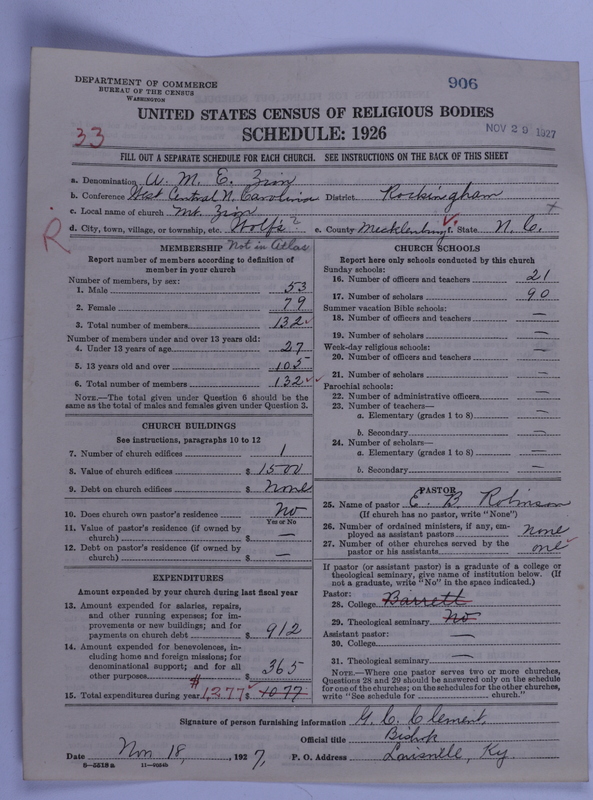 DEPARTMENT OF COMMERCE
BUREAU OF THE CENSUS
WASHINGTON
906
UNITED STATES CENSUS OF RELIGIOUS BODIES
SCHEDULE: 1926
NOV 29 1927
33
FILL OUT A SEPARATE SCHEDULE FOR EACH CHURCH. SEE INSTRUCTIONS ON THE BACK OF THIS SHEET
a. Denomination A. M. E. Zion
b. Conference West Central N. Carolina District Rockingham
c. Local name of church Mt. Zion x
d. City, town, village, or township, etc. Wolfs ? e. County Mecklenburg f. State N. C.
R
MEMBERSHIP Not in Atlas
Report number of members according to definition of
member in your church
Number of members, by sex:
1. Male 53
2. Female 79
3. Total number of members 132
Number of members under and over 13 years old:
4. Under 13 years of age 27
5. 13 years old and over 105
6. Total number of members 132
NOTE.—The total given under Question 6 should be the
same as the total of males and females given under Question 3.
CHURCH BUILDINGS
See instructions, paragraphs 10 to 12
7. Number of church edifices 1
8. Value of church edifices $ 1500
9. Debt on church edifices $ None
10. Does church own pastor's residence No
Yes or No
11. Value of pastor's residence (if owned by
church) $ —
12. Debt on pastor's residence (if owned by
church) $ —
EXPENDITURES
Amount expended by your church during last fiscal year
13. Amount expended for salaries, repairs,
and other running expenses; for im-
provements or new buildings; and for
payments on church debt $ 912
14. Amount expended for benevolences, in-
cluding home and foreign missions; for
denominational support; and for all
other purposes $ 365
15. Total expenditures during year $1,277 $ 1077
CHURCH SCHOOLS
Report here only schools conducted by this church
Sunday schools:
16. Number of officers and teachers 21
17. Number of scholars 90
Summer vacation Bible schools:
18. Number of officers and teachers —
19. Number of scholars —
Week-day religious schools:
20. Number of officers and teachers —
21. Number of scholars —
Parochial schools:
22. Number of administrative officers —
23. Number of teachers—
a. Elementary (grades 1 to 8) —
b. Secondary —
24. Number of scholars—
a. Elementary (grades 1 to 8) —
b. Secondary —
PASTOR
25. Name of pastor E. B. Robinson
(If church has no pastor, write "None")
26. Number of ordained ministers, if any, em-
ployed as assistant pastors None
27. Number of other churches served by the
pastor or his assistants one
If pastor (or assistant pastor) is a graduate of a college or
theological seminary, give name of institution below. (If
not a graduate, write "No" in the space indicated.)
Pastor:
28. College Barrett
29. Theological seminary No
Assistant pastor:
30. College —
31. Theological seminary —
NOTE.—Where one pastor serves two or more churches,
Questions 28 and 29 should be answered only on the schedule
for one of the churches; on the schedules for the other churches,
write "See schedule for church."
Signature of person furnishing information G. C. Clement,
Official title Bishop
Date Nov 18, 1927, P. O. Address Louisville, Ky.
8—5518a 11—9034b